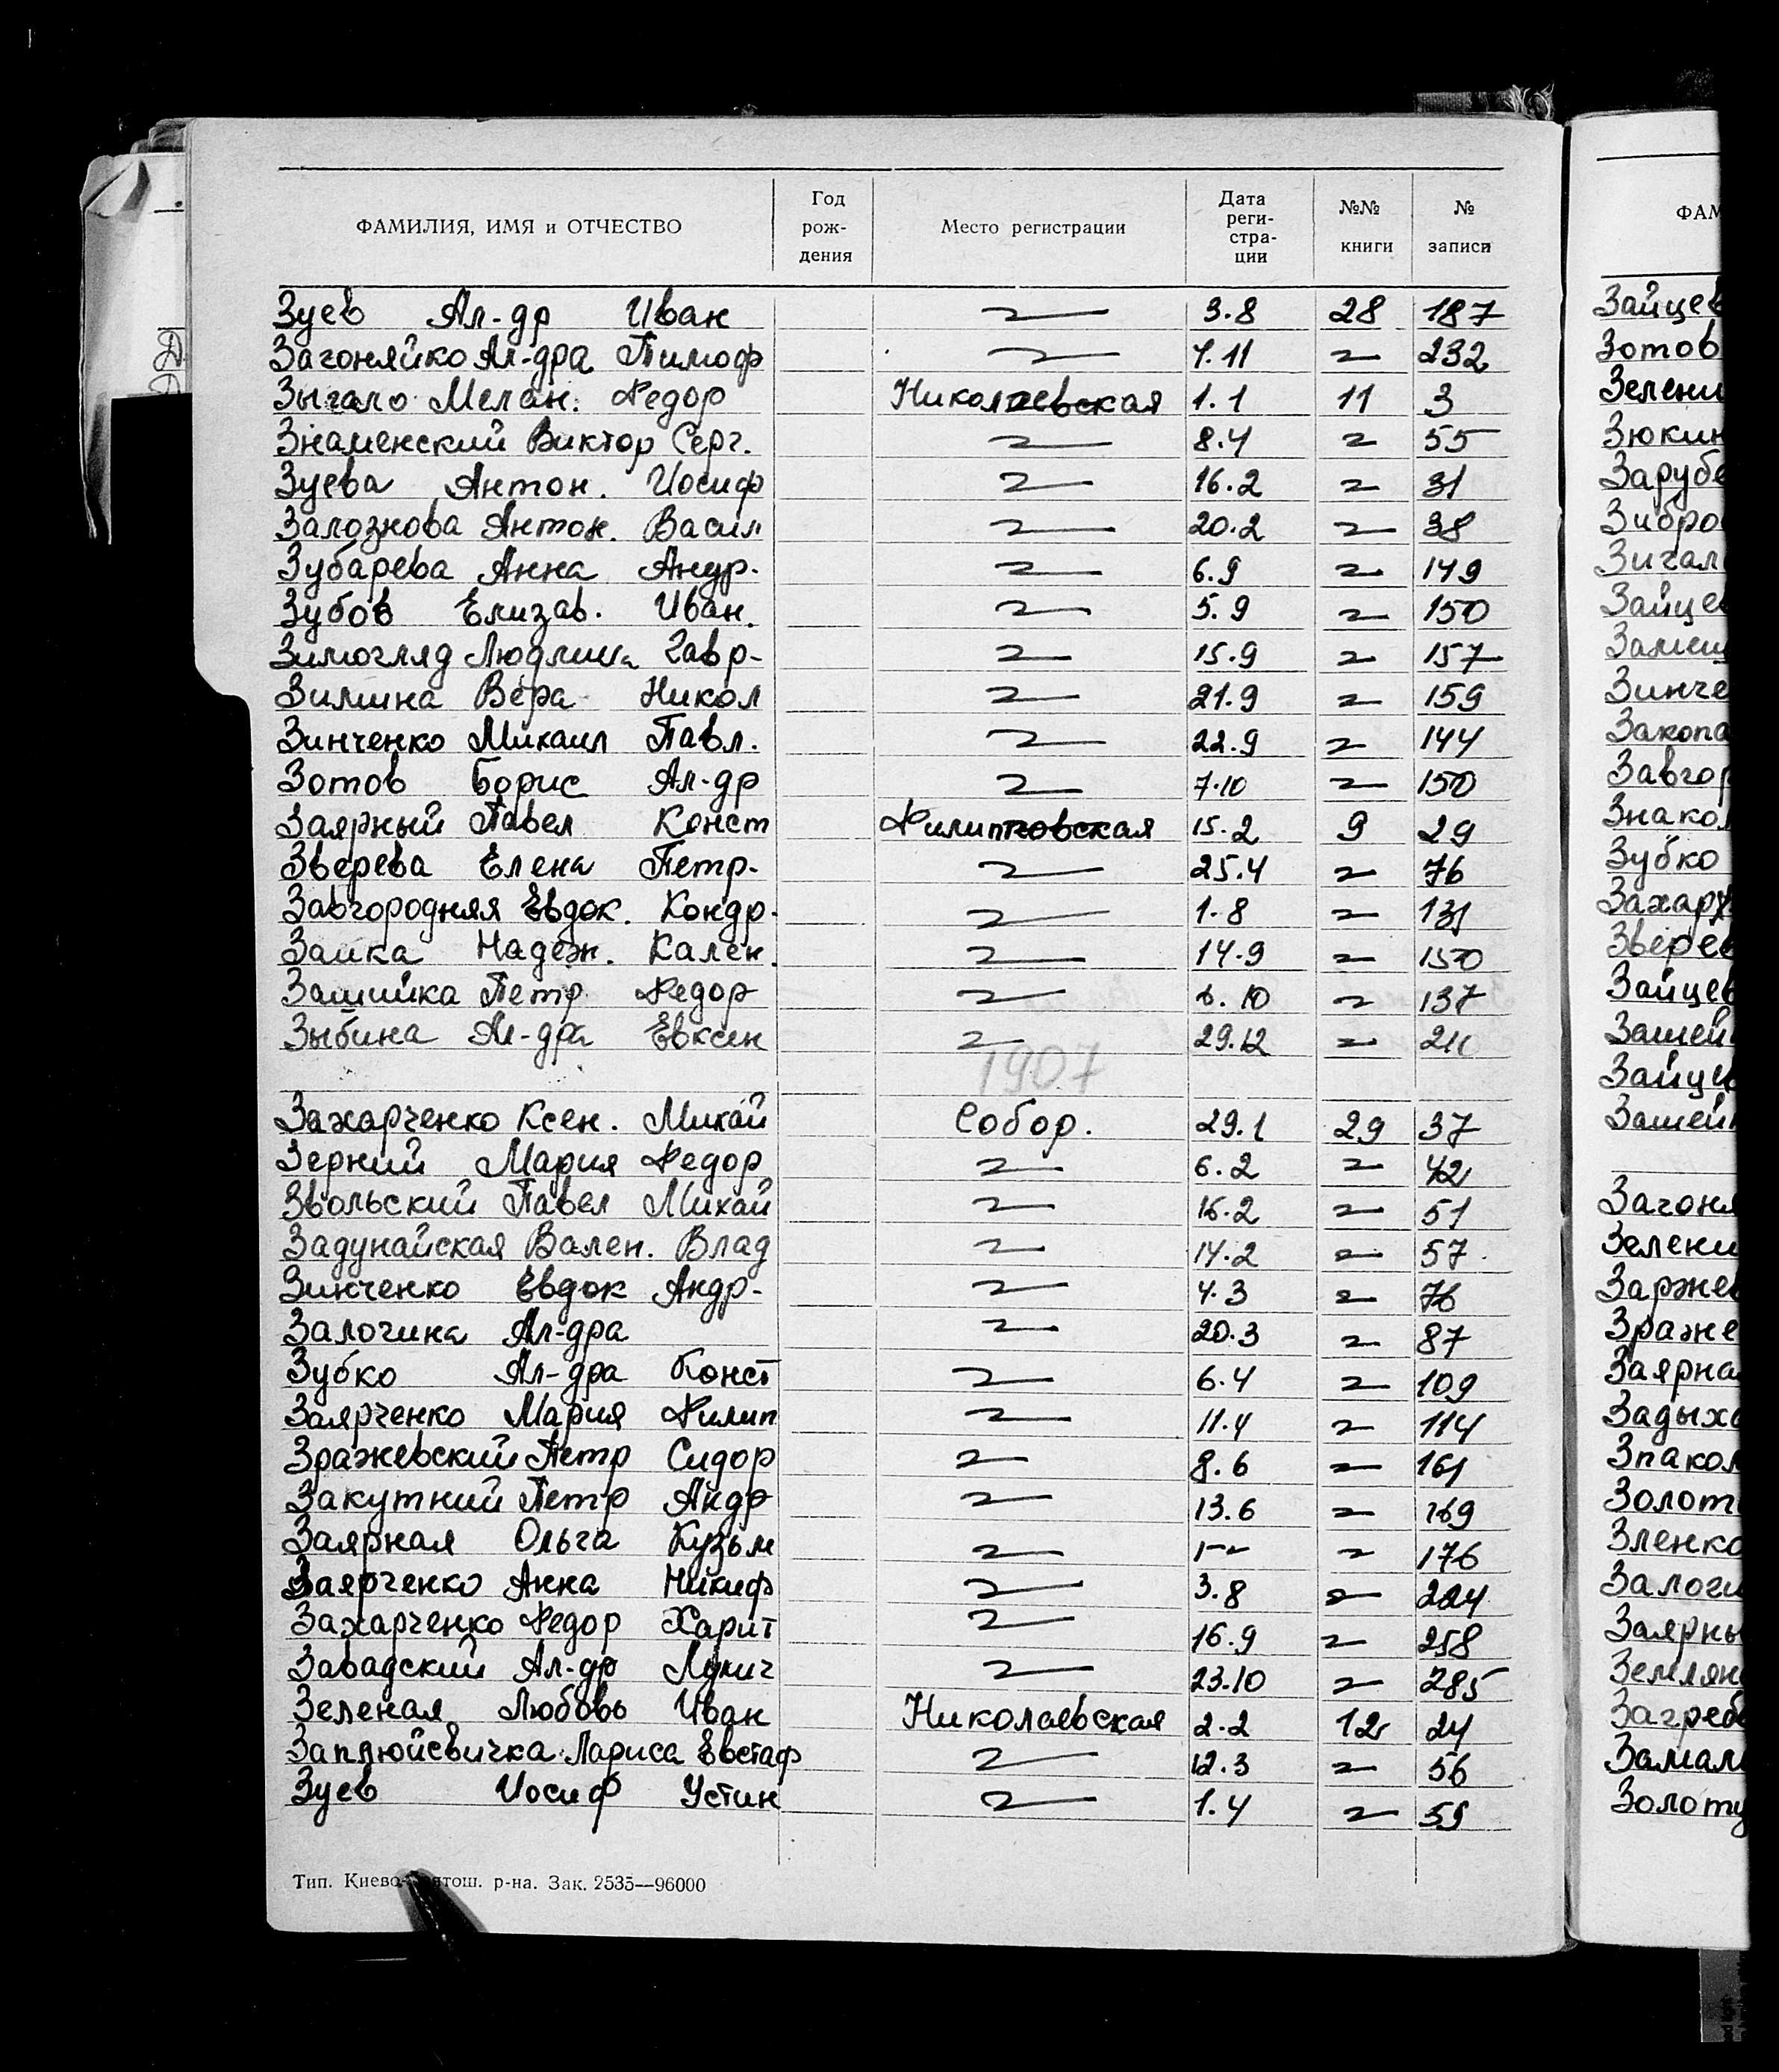 ФАМИЛИЯ, ИМЯ и ОТЧЕСТВО Год рож- дения Место регистрации Дата реги- стра- ции №№ книги № записи
Зуев Ал-др Иван 3.8 28 187
Загоняйко Ал-дра Тимоф 7.11 232
Зыгало Мелан. Федор Николаевская 1.1 11 3
Знаменский Виктор Серг. 8.4 55
Зуева Антон. Иосиф 16.2 31
Залознова Антон. Васил 20.2 38
Зубарева Анна Андр. 6.9 149
Зубов Елизав. Иван. 5.9 150
Зимогляд Людмила Гавр- 15.9 157
Зимина Вера Никол 21.9 159
Зинченко Михаил Павл. 22.9 144
Зотов Борис Ал-др 7.10 150
Заярный Павел Конст Филипповская 15.2 9 29
Зверева Елена Петр. 25.4 76
Завгородняя Евдок. Кондр. 1.8 131
Заика Надеж. Кален. 14.9 150
Петр Федор 6.10 137
Зыбина Ал-дра Евксен 29.12
1907
Захарченко Ксен. Михай Собор. 29.1 29 37
Зерний Мария Федор 6.2 42
Звольский Павел Михай 16.2 51
Задунайская Вален. Влад 14.2 57
Зинченко Евдок Андр- 4.3 76
Залогина Ал-дра 20.3 87
Зубко Ал-дра Конст 6.4 109
Заярченко Мария Филип 11.4 114
Зражевский Петр Сидор 8.6 161
Закутний Петр Андр 13.6 169
Заярная Ольга Кузьм 176
Заярченко Анна Никиф 3.8 204
Захарченко Федор Харит 16.9 258
Завадский Ал-др Лукич 23.10 285
Зеленая Любовь Иван Николаевская 2.2 12 24
Заплюйсвичка Лариса Евстаф 12.3 56
Зуев Иосиф Устин 1.4 59
Тип. Киево- р-на. Зак. 2535—96000
ФАМ
Зайцев
Зотов
Зелени
Зюкин
Зарубе
Зибро
Зигал
Зайцев
Замещ
Зинче
Закопа
Завгор
Знако
Зубко
Захар
Зверев
Зайцев
Зашей
Зайцев
Зашей
Загоня
Зелени
Заржев
Зраже
Заярна
Задыха
Знакол
Золот
Зленко
Залоги
Заярны
Землян
Загреб
Замал
Золоту